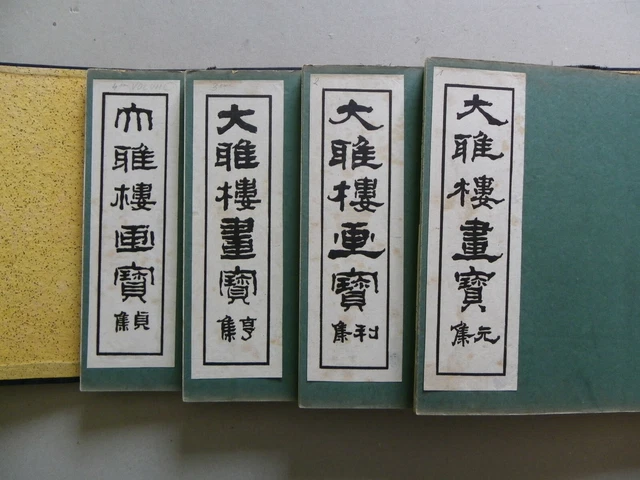 大雅樓畫寶
元集
大雅樓画寶
利集
大雅樓畫寶
亨集
大雅樓画寶
貞集